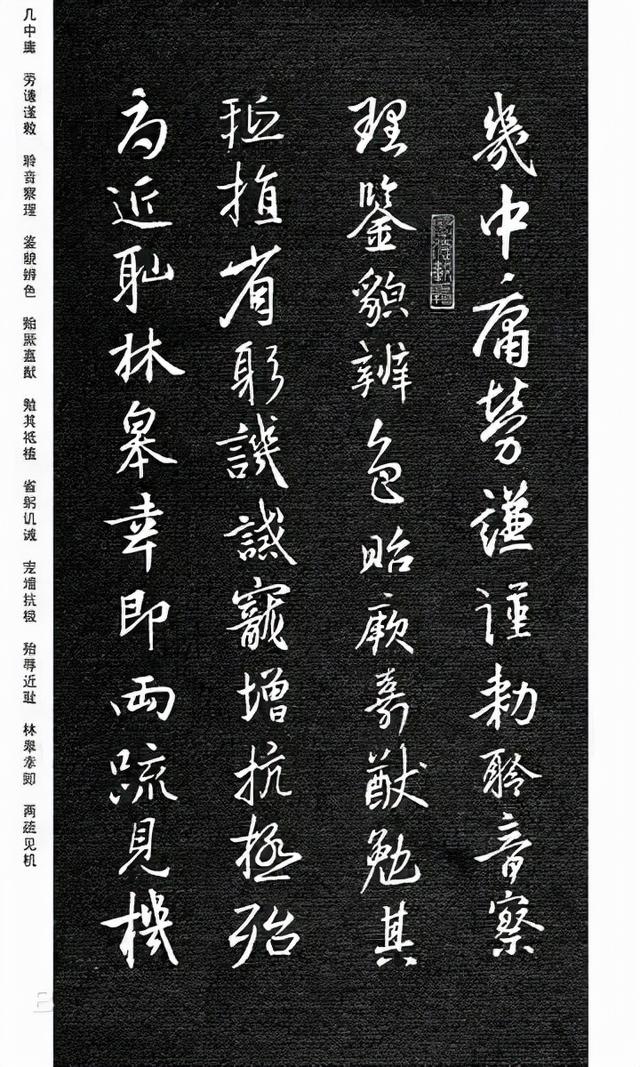 幾中庸勞謙謹勅聆音察
理鑒貌辨色貽厥嘉猷勉其
祗植省躬譏誡寵增抗極殆
辱近恥林皋幸即兩疏見機
几中庸 劳谦谨敕 聆音察理 鉴貌辨色 贻厥嘉猷 勉其祗植 省躬讥诫 宠增抗极 殆辱近耻 林皋幸即 两疏见机